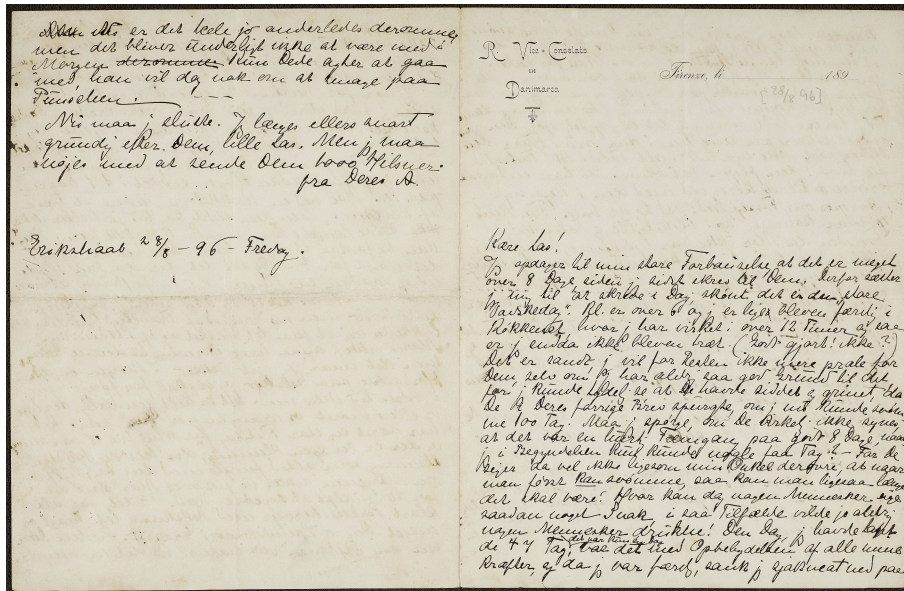 er det hele jo anderledes derovre,
men det bliver underligt ikke at være med i
Morgen derovre Kun Dede agter at gaa
med, han vil dog nok om at smage paa
Punschen.
Nu maa j slutte. Jeg længes ellers snart
grundig efter Dem, lille Las. Men j maa
nøjes med at sende Dem 1000 Hilsner.
fra Deres A.
Erikshaab 28/8 – 96 – Fredag.
R. Vice-Consolato
DI
Danimarca
Firenze, li 189
[28/8 96]
Kære Las!
Jeg opdager til min store Forbauselse, at det er meget
over 8 Dage siden j sidst skrev til Dem. Derfor sætter
j mig til at skrive i Dag, skønt det er den store
"Vaskedag". Kl. er over 6 og j er lige bleven færdig i
Køkkenet, hvor j har virket i over 12 Timer og saa
er j endda ikke bleven træt. (Godt gjort! ikke?)
Det er sandt j vil for Resten ikke mere prale for
Dem, selv om j har aldrig saa god Grund til det
for j kunde tydel. se at De havde siddet og grinet, da
De i Deres forrige Brev spurgte, om j nu kunde svøm-
me 100 Tag. Maa j spørge, om De virkel. ikke synes
at det var en Fremgang paa godt 8 Dage, naar
i Begyndelsen kun kunde nogle faa Tag? – Før De
siger da vel ikke ligesom min Onkel derovre, at naar
man først kan svømme, saa kan man ligesaa længe
det skal være! Hvor kan dog nogen Mennesker sige
saadan noget Snak, i saa Tilfælde vilde jo aldrig
nogen Mennesker drukne! Den Dag j havde taget
de 47 Tag, var det med Opbydelsen af alle mine
Kræfter, og da j var færdig, sank j sjakmat ned paa